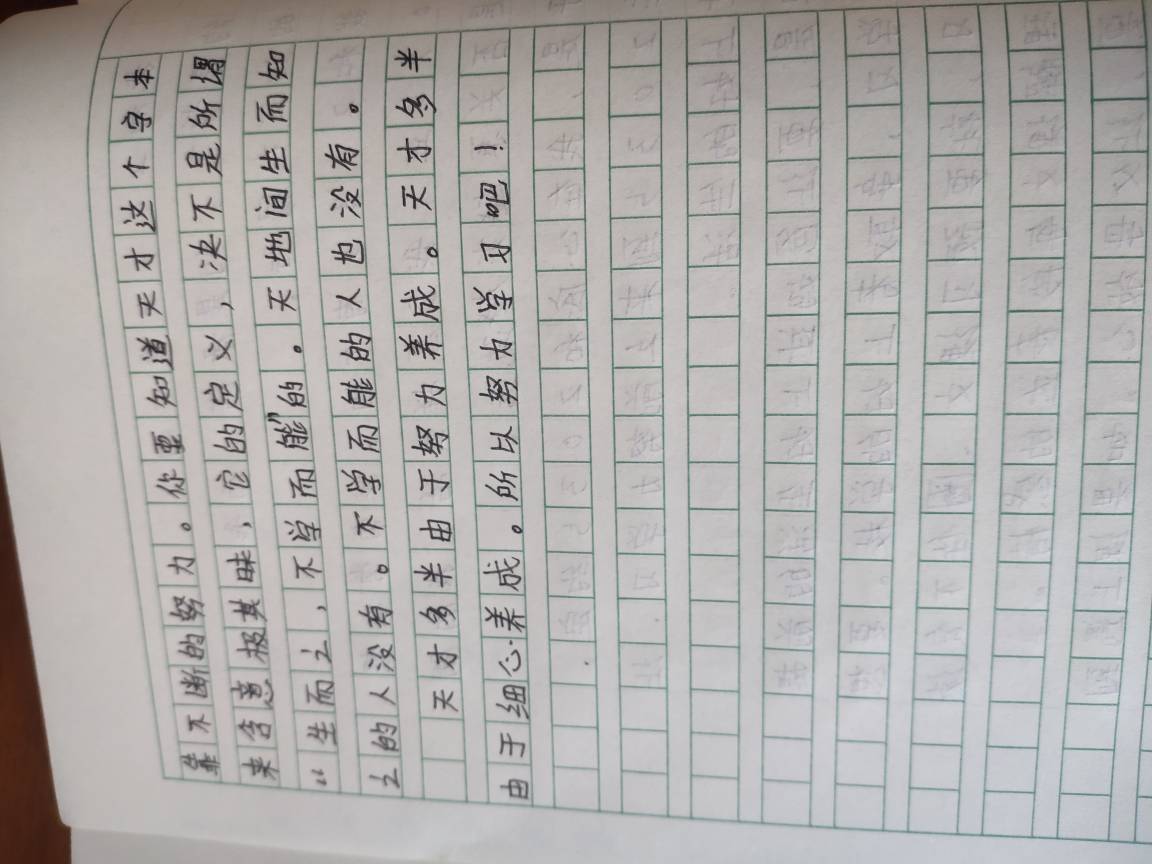 靠不断的努力。你要知道天才这个字本
来含意极其昧，它的定义，决不是所谓
“生而之，不学而能”的。天地间生而知
之的人没有。不学而能的人也没有。
天才多半由于努力养成。天才多半
由于细心养成。所以努力学习吧！